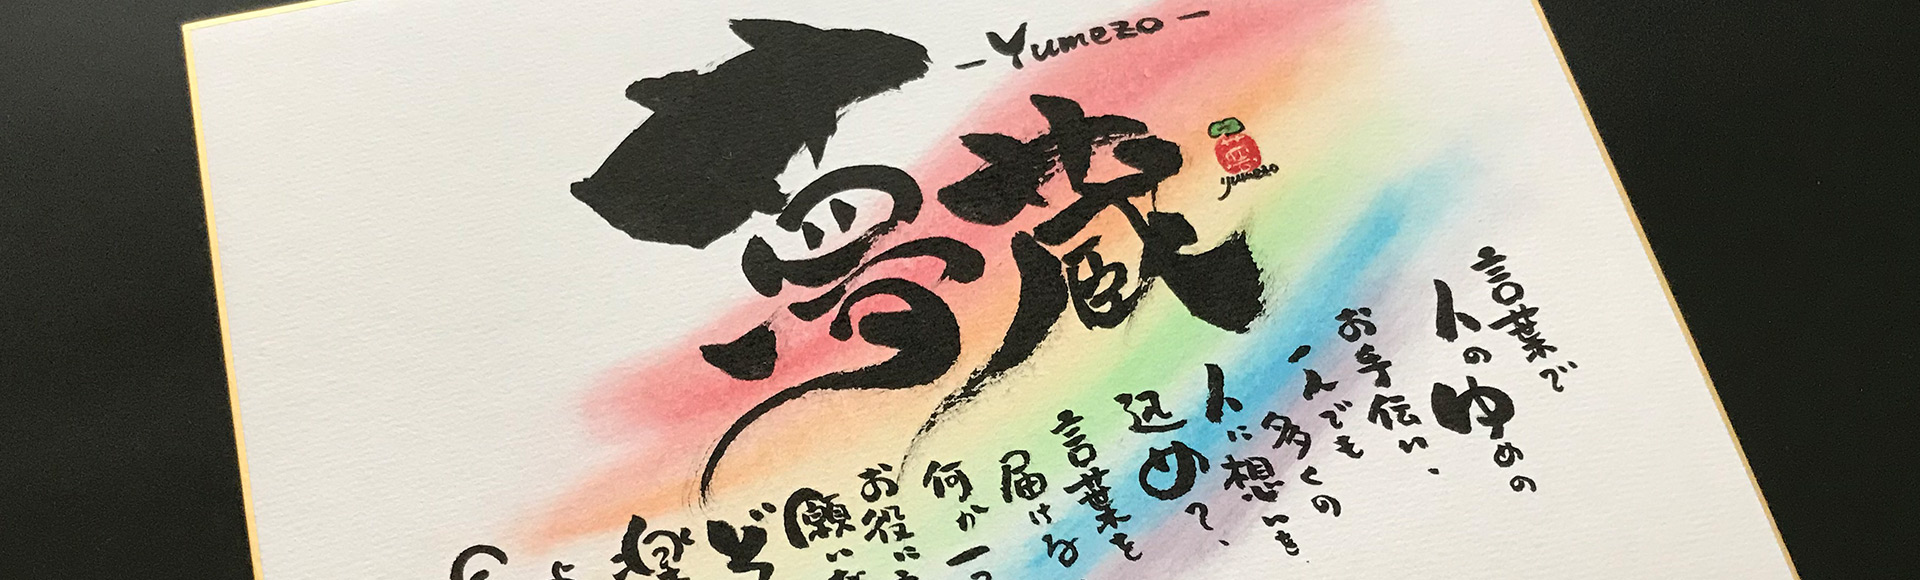 夢蔵
-Yumezo-
yumezo
言葉で
人のゆめの
お手伝い、
一人でも
多くの
人に想いを
込めて、
言葉を
届ける
何か一つ
お役に
願い
ど